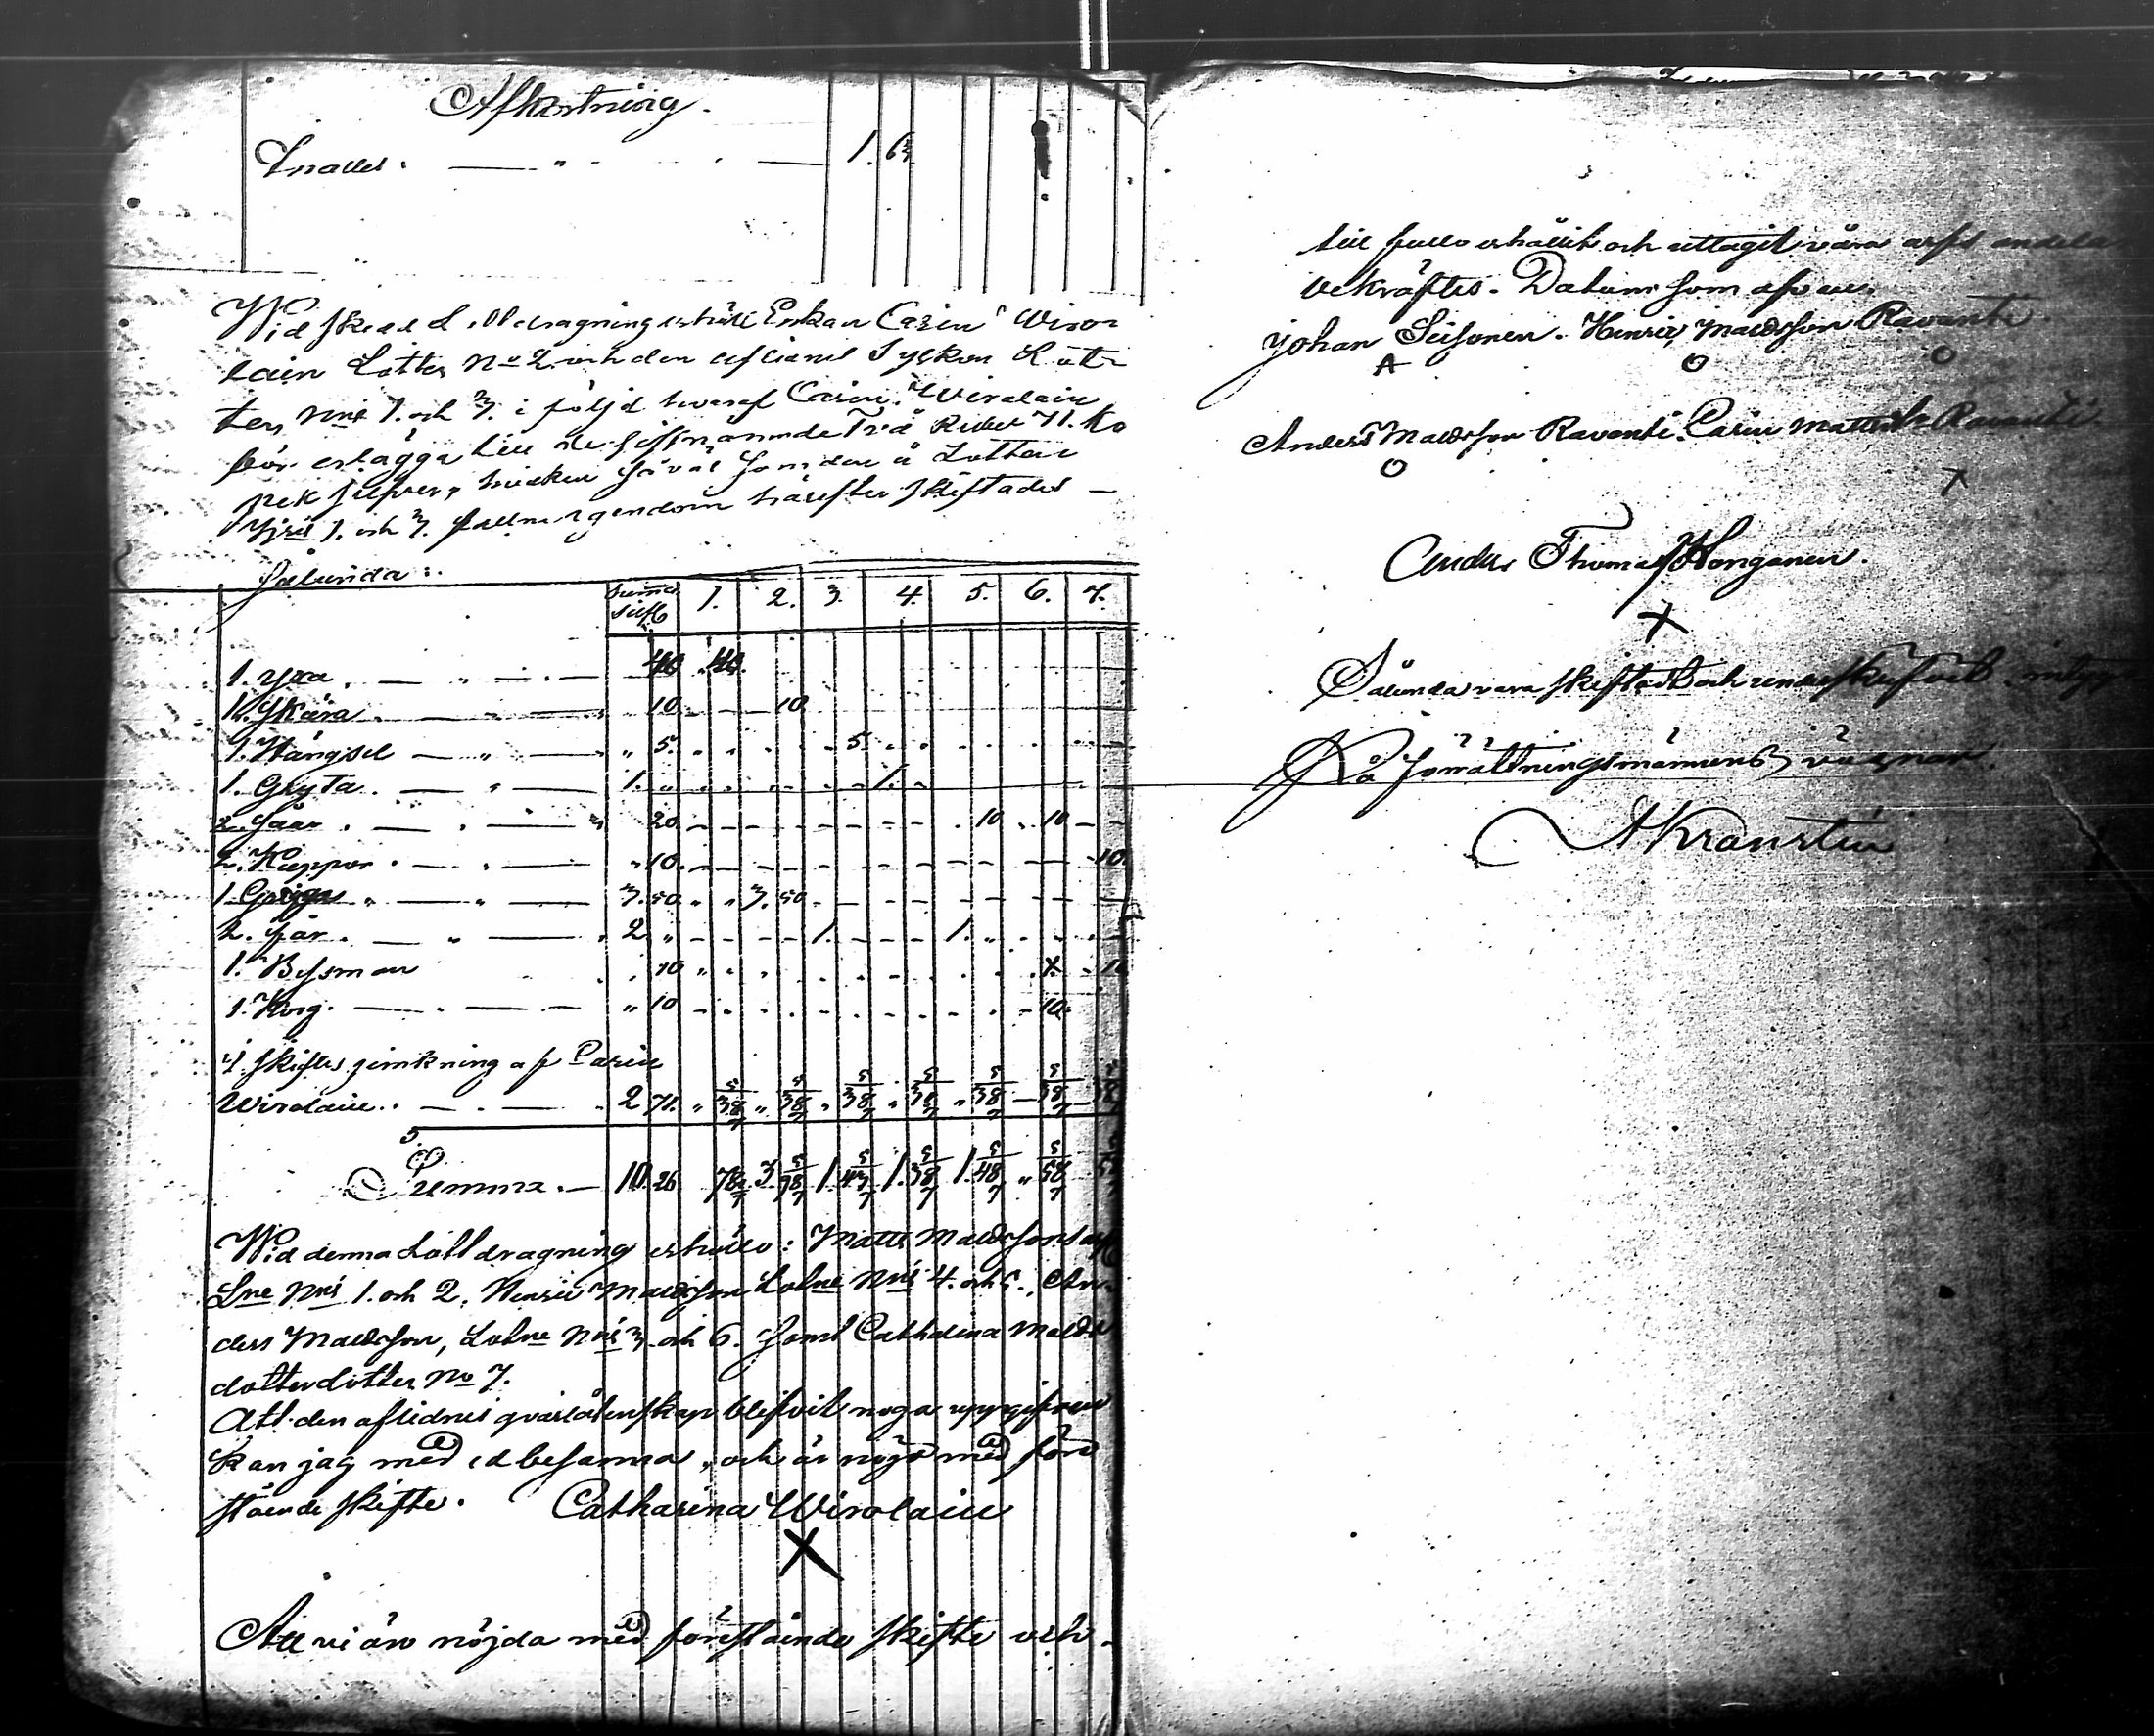 Afkortning.
Knalles. — " — 1. 6 3/7
Wid skedd Lottdragning erhöll Enkan Carin Wiro-
lain Lotten No 2 och den aflidnes Syskon Lot-
ter Nris 1. och 3. i följd hvaraf Carin Wirolain
bör erlägga till de sistnämnde Två Rubel 71. Ko
pek silfver, hvilken såväl som den å Lotterne
Nris 1. och 3. fallne egendom härefter skiftades —
sålunda:
Summa silf. 1. 2. 3. 4. 5. 6. 7.
1. yxa. — " — 40 40.
1. Skära. — 10. 10
1. Hängsel — " — " 5. 5.
1. Gryta. — " — 1. " 1.
2. Såar. — " 20. 10 10
2. Kappor. — " — " 10. 10.
1. — " — 3. 50 3. 50
2. får. — " — 2 " 1. 1.
1. Bessman 10 10
1. Korg. — " 10 10.
skiftes jemkning af Carin
Wirolain. — 2 71. " 38 5/7 " 38 5/7 " 38 5/7 " 38 5/7 " 38 5/7 — 38 5/7 — 38 5/7
Summa. — 10. 26 78 5/7 3 98 5/7 1. 43 5/7 1. 38 5/7 1. 48 5/7 " 58 5/7
Wid denna Lottdragning erhöllo: Matts Mattsson
Lne Nris 1. och 2, Henric Mattsson Lotne Nris 4. och 5., An-
ders Mattsson, Lotne Nris 3 och 6. samt Catharina Matts
dotter lotten No 7.
Att den aflidnes qvarlåtenskap blifvit noga uppgifven
kan jag med ed besanna, och är nöjd med före
stående skifte. Catharina Wirolain
X
Att vi äro nöjda med förestående skifte och
till fullo erhållit och uttagit våra arfs andelar
bekräftes. Datum som ofvan.
Johan Seisonen. Henric Mattsson Ravantti
A O O
Anders Mattsson Ravantti. Carin Mattsdr Ravantti
O X
Anders Thomasson Hongonen.
X
Sålunda vara skiftadt och
På förrättningsmännens vägnar
A Kranstén